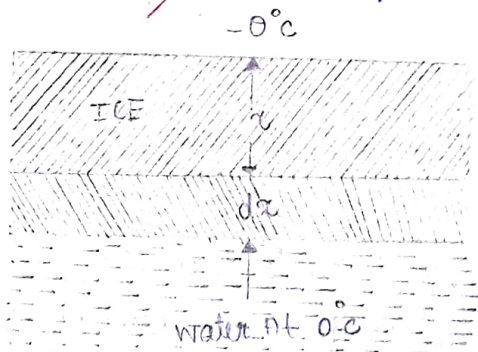 -θ°C
ICE
x
dx
water At 0°C